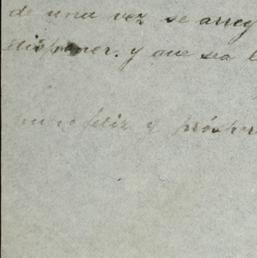 de una vez se arreg
disponer. y que sea l
feliz y prósper